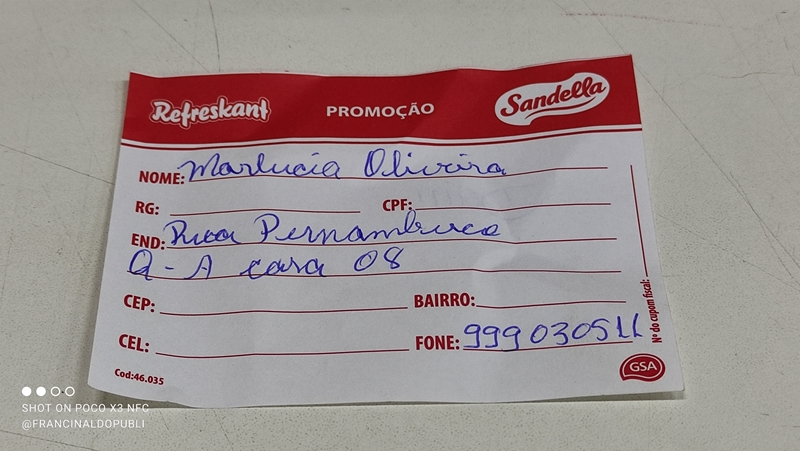 Refreskant PROMOÇÃO Sandella
NOME: Marlucia Oliveira
RG: CPF:
END: Rua Pernambuco
Q - A casa 08
CEP: BAIRRO:
CEL: FONE: 999030511
Nº do cupom fiscal:
Cod:46.035
GSA
SHOT ON POCO X3 NFC
@FRANCINALDOPUBLI